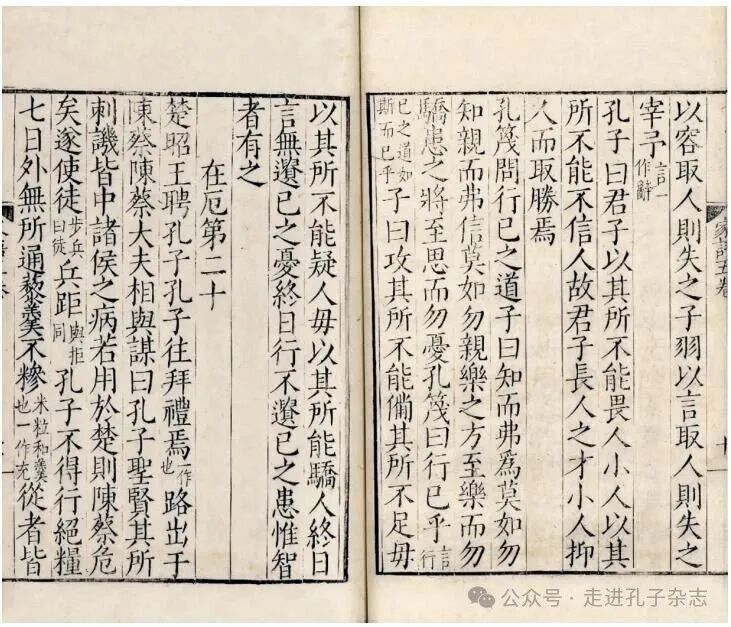 以容取人則失之子羽以言取人則失之
宰予言一作辭
孔子曰君子以其所不能畏人小人以其
所不能不信人故君子長人之才小人抑
人而取勝焉
孔篾問行已之道子曰知而弗爲莫如勿
知親而弗信莫如勿親樂之方至樂而勿
驕患之將至思而勿憂孔篾曰行已乎言行
已之道如斯而已乎子曰攻其所不能備其所不足毋
以其所不能疑人毋以其所能驕人終日
言無遺已之憂終日行不遺已之患惟智
者有之
在厄第二十
楚昭王聘孔子孔子往拜禮焉一作也路出于
陳蔡陳蔡大夫相與謀曰孔子聖賢其所
刺譏皆中諸侯之病若用於楚則陳蔡危
矣遂使徒步兵曰徒兵距與拒同孔子不得行絕糧
七日外無所通藜羹不糝米粒和羹也一作充從者皆
家語五卷
公众号·走进孔子杂志